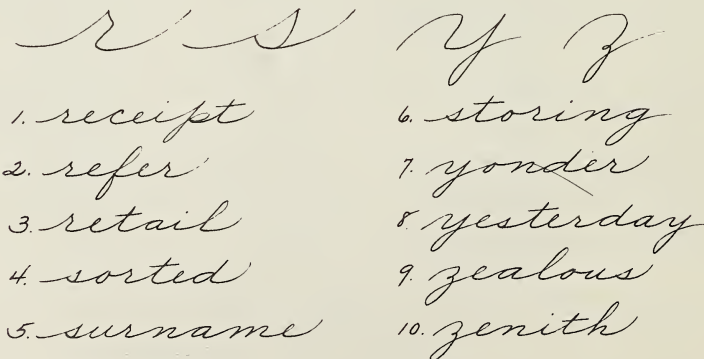 r s y z
1. receipt
2. refer
3. retail
4. sorted
5. surname
6. storing
7. yonder
8. yesterday
9. zealous
10. zenith